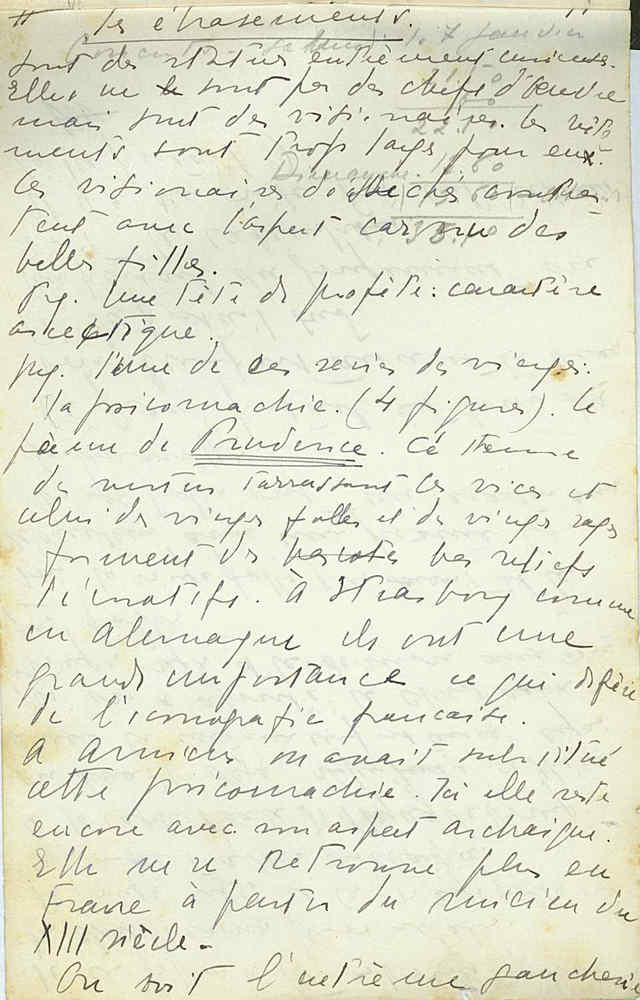 les ébrasements.
sont des statues entièrement curieuse.
Elles ne sont pas des chefs d'oeuvre
mais sont des visionaires. les vête
ments sont trop larges pour eux.
Ces visionaires
tent avec l'aspect des
belles filles.
Pg. Une tête de profète: caractère
asceptique.
pg. l'une de ces series des vierges.
la psicomachie. (4 figures). le
poème de Prudence. Ce theme
de vertus terrassant les vices et
celui des vierges folles et des vierges sages
forment des bas reliefs
. À Strasbourg comme
en Alemagne ils ont une
grande importance ce qui difère
de l'iconografie francaise.
A Amiens on avait substitué
cette psicomachie. Ici elle reste
encore avec son aspect archaique.
Elle ne se retrouve plus en
France à partir du milieu du
XIII siècle.
On voit l'extrème gaucherie